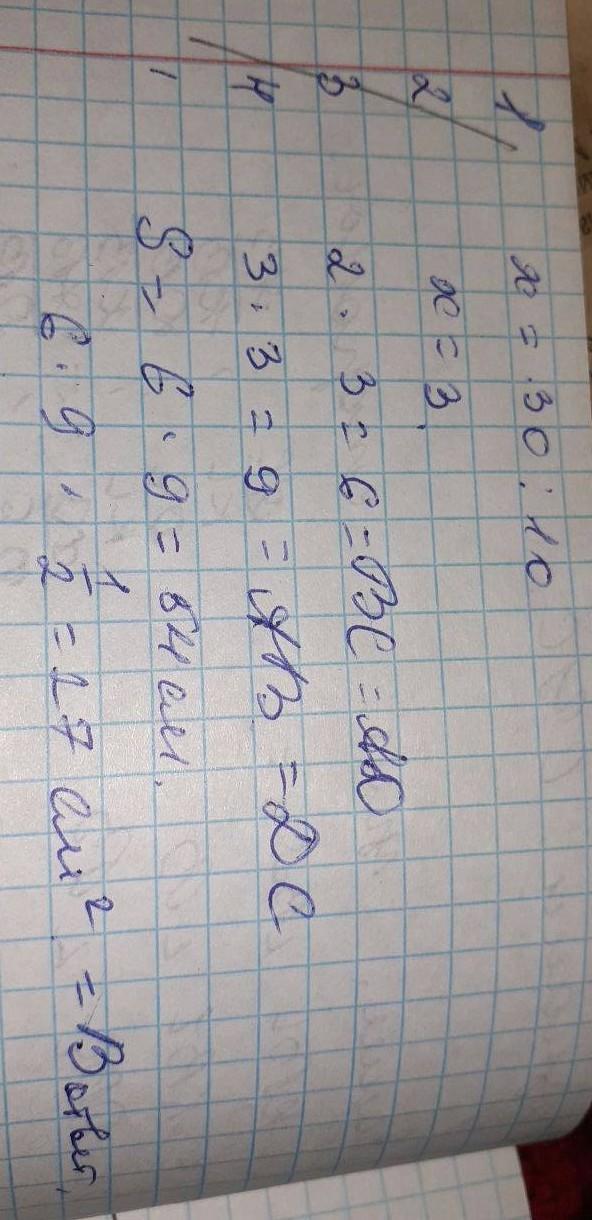 1 x = 30 : 10
2 x = 3.
3 2 · 3 = 6 = BC = AD
4 3 · 3 = 9 = AB = DC
S = 6 · 9 = 54 см.
6 · 9 · 1/2 = 27 см² = В ответ.